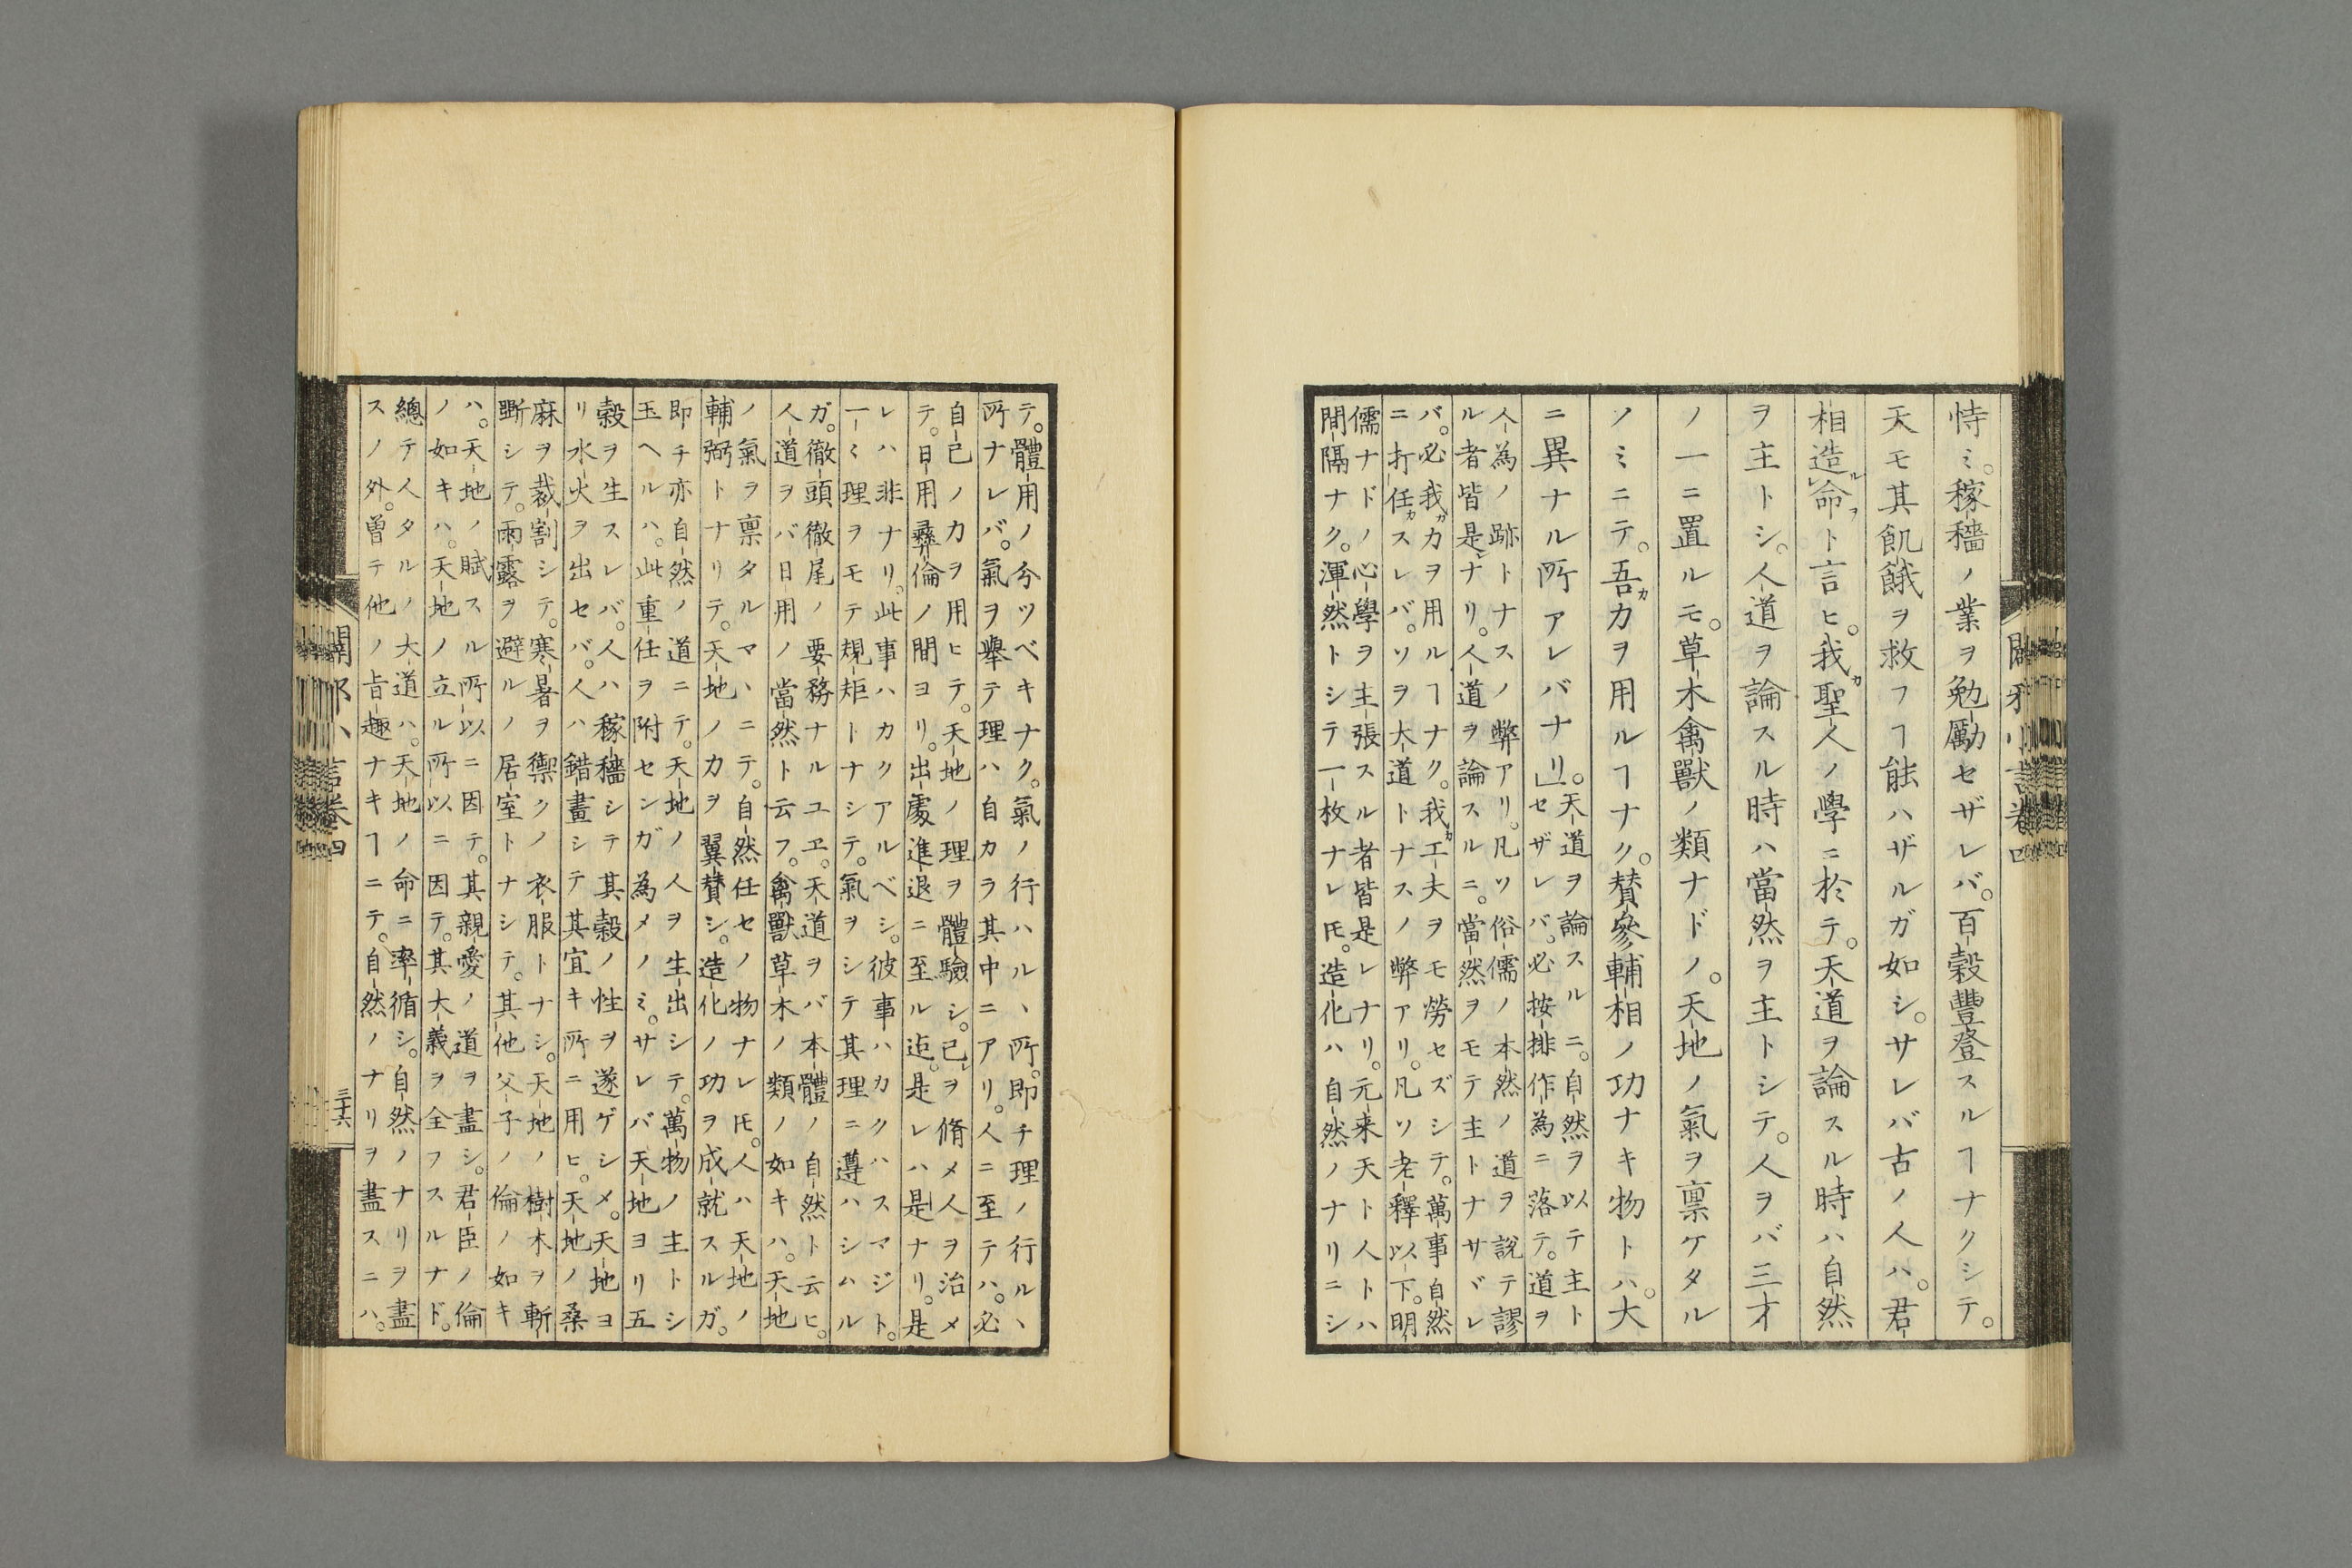 恃ミ。稼穡ノ業ヲ勉勵セザレバ。百穀豐登スルヿナクシテ。
天モ其飢餓ヲ救フヿ能ハザルガ如シ。サレバ古ノ人ハ。君
相造命ト言ヒ。我聖人ノ學ニ於テ。天道ヲ論スル時ハ自然
ヲ主トシ。人道ヲ論スル時ハ當然ヲ主トシテ。人ヲバ三才
ノ一ニ置ルモ。草木禽獸ノ類ナドノ。天地ノ氣ヲ禀ケタル
ノミニテ。吾力ヲ用ルヿナク。賛參輔相ノ功ナキ物トハ。大
ニ異ナル所アレバナリ」。
天道ヲ論スルニ。自然ヲ以テ主ト
セザレバ。必按排作為ニ落テ。道ヲ
人為ノ跡トナスノ弊アリ。凡ソ俗儒ノ本然ノ道ヲ說テ謬
ル者皆是ナリ。人道ヲ論スルニ。當然ヲモテ主トナサヾレ
バ。必我力ヲ用ルヿナク。我工夫ヲモ勞セズシテ。萬事自然
ニ打任スレバ。ソヲ大道トナスノ弊アリ。凡ソ老釋以下。明
儒ナドノ心學ヲ主張スル者皆是レナリ。元来天ト人トハ
間隔ナク。渾然トシテ一枚ナレ𪜈。造化ハ自然ノナリニシ
テ。體用ノ分ツベキナク。氣ノ行ハルヽ所。即チ理ノ行ルヽ
所ナレバ。氣ヲ擧テ理ハ自カラ其中ニアリ。人ニ至テハ。必
自己ノ力ヲ用ヒテ。天地ノ理ヲ體驗シ。己ヲ脩メ人ヲ治メ
テ。日用彝倫ノ間ヨリ。出處進退ニ至ル迄。是レハ是ナリ。是
レハ非ナリ。此事ハカクアルベシ。彼事ハカクハスマジト。
一ミ理ヲモテ規矩トナシテ。氣ヲシテ其理ニ遵ハシムル
ガ。徹頭徹尾ノ要務ナルユヱ。天道ヲバ本體ノ自然ト云ヒ。
人道ヲバ日用ノ當然ト云フ。禽獸草木ノ類ノ如キハ。天地
ノ氣ヲ禀タルマヽニテ。自然任セノ物ナレ𪜈。人ハ天地ノ
輔弼トナリテ。天地ノ力ヲ翼賛シ。造化ノ功ヲ成就スルガ。
即チ亦自然ノ道ニテ。天地ノ人ヲ生出シテ。萬物ノ主トシ
玉ヘルハ。此重任ヲ附センガ為メノミ。サレバ天地ヨリ五
穀ヲ生スレバ。人ハ稼穡シテ其穀ノ性ヲ遂ゲシメ。天地ヨ
リ水火ヲ出セバ。人ハ錯畫シテ其宜キ所ニ用ヒ。天地ノ桑
麻ヲ裁割シテ。寒暑ヲ禦クノ衣服トナシ。天地ノ樹木ヲ斬
斷シテ。雨露ヲ避ルノ居室トナシテ。其他父子ノ倫ノ如キ
ハ。天地ノ賦スル所以ニ因テ。其親愛ノ道ヲ盡シ。君臣ノ倫
ノ如キハ。天地ノ立ル所以ニ因テ。其大義ヲ全フスルナド。
總テ人タルノ大道ハ。天地ノ命ニ率循シ。自然ノナリヲ盡
スノ外。曽テ他ノ旨趣ナキヿニテ。自然ノナリヲ盡スニハ。
三十六